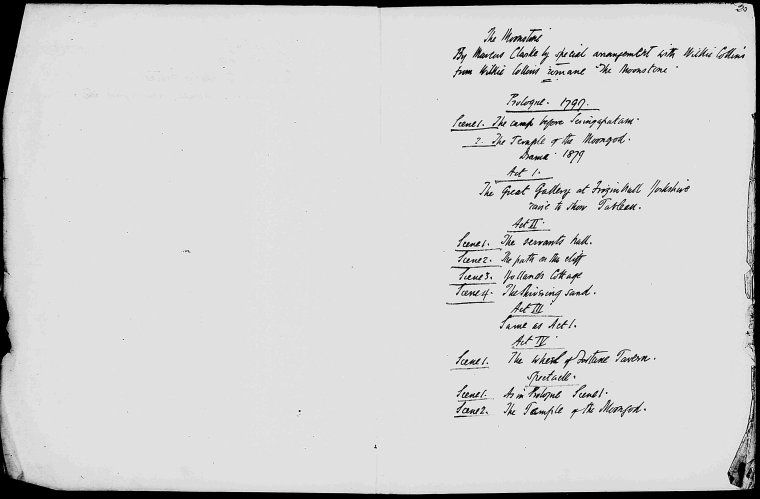 The Moonstone
By Marcus Clarke by special arrangement with Wilkie Collins
from Wilkie Collins' romance "The Moonstone"
Prologue. 1797.
Scene 1. The camp before Seringapatam.
2. The Temple of the Moongod.
Drama 1879
Act 1.
The Great Gallery at Frizinhall Yorkshire
raise to show Tableau.
Act II.
Scene 1. The servants hall.
Scene 2. The path on the cliff
Scene 3. Yollands Cottage
Scene 4. The Shivering sand.
Act III
Same as Act 1.
Act IV
Scene 1. The Wheel of Fortune Tavern.
Spectacle.
Scene 1. As in Prologue Scene 1.
Scene 2. The Temple of the Moongod.